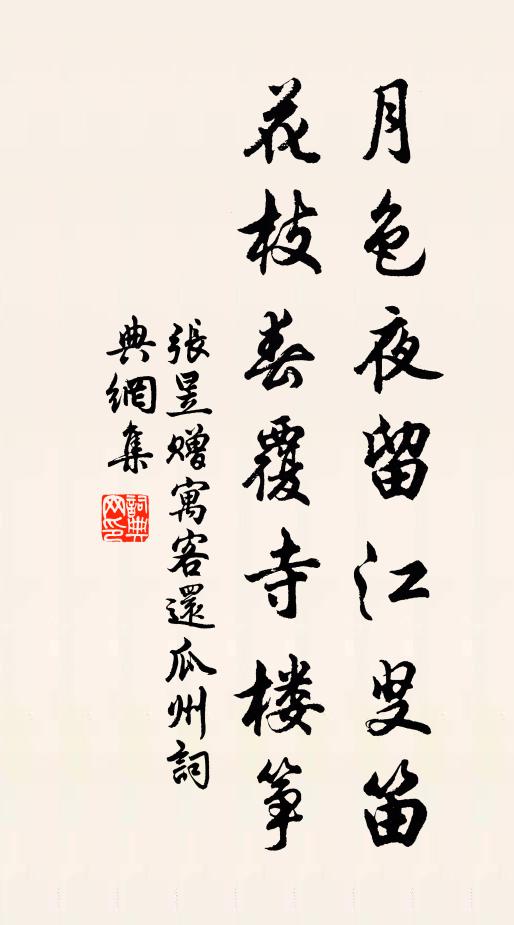 月色夜留江叟笛
花枝春覆寺樓箏
張昱贈寓客還瓜州詞
典網集
詞典
网印